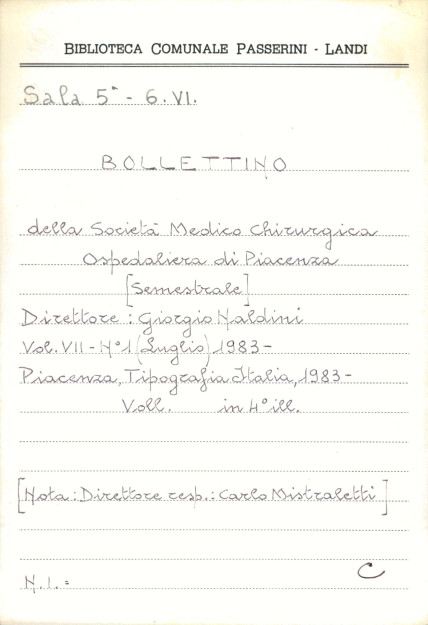 BIBLIOTECA COMUNALE PASSERINI - LANDI
Sala 5ª - 6. VI.
BOLLETTINO
della Società Medico Chirurgica
Ospedaliera di Piacenza
[Semestrale]
Direttore: Giorgio Maldini
Vol. VII - N° 1 (Luglio) 1983 -
Piacenza, Tipografia Italia, 1983 -
Voll. in 4° ill.
[Nota: Direttore resp.: Carlo Mistraletti]
N.I. =
C